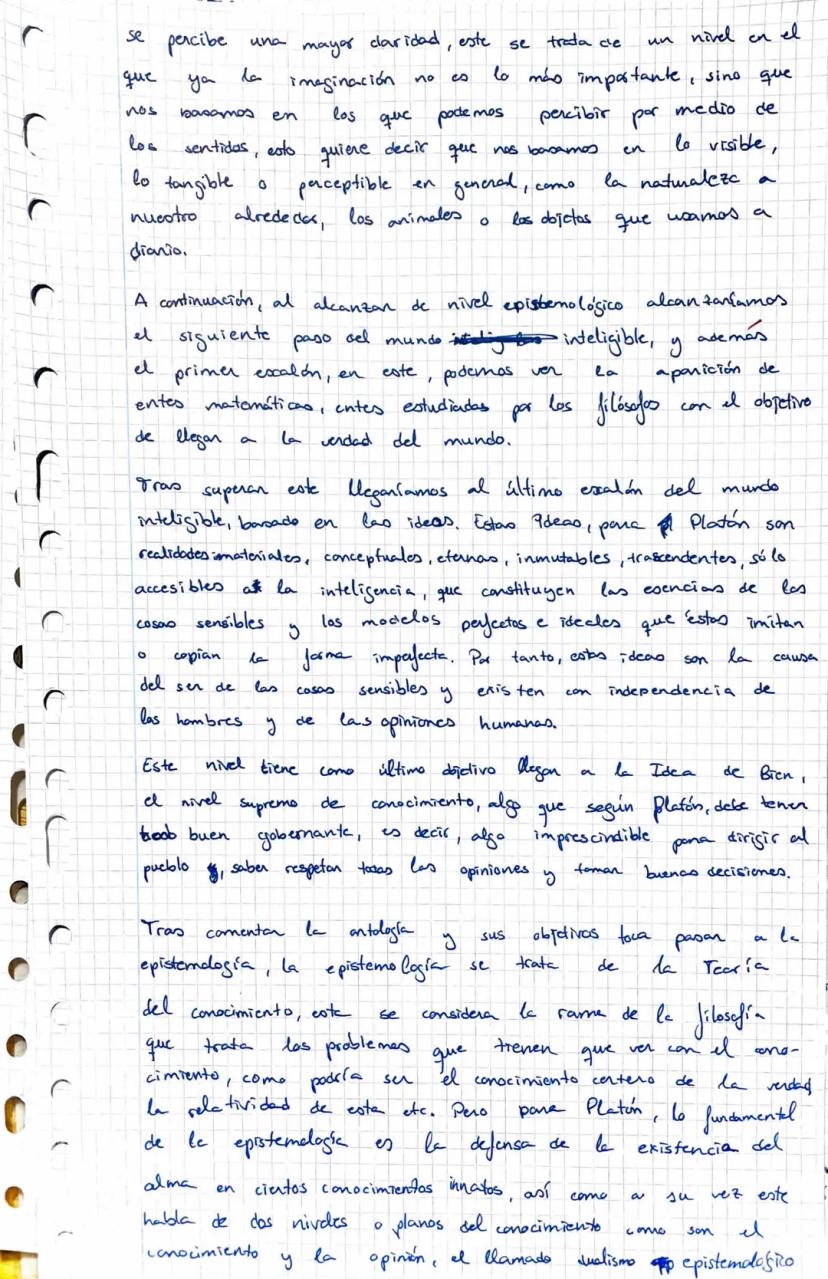 se percibe una mayor claridad, este se trata de un nivel en el
que ya la imaginación no es lo más importante, sino que
nos basamos en los que podemos percibir por medio de
los sentidos, esto quiere decir que nos basamos en lo visible,
lo tangible o perceptible en general, como la naturaleza a
nuestro alrededor, los animales o los objetos que usamos a
diario.
A continuación, al alcanzar de nivel epistemológico alcanzaríamos
el siguiente paso del mundo inteligible, y además
el primer escalón, en este, podemos ver la aparición de
entes matemáticos, entes estudiados por los filósofos con el objetivo
de llegar a la verdad del mundo.
Tras superar este llegaríamos al último escalón del mundo
inteligible, basado en las ideas. Estas Ideas, para Platón son
realidades inmateriales, conceptuales, eternas, inmutables, trascendentes, sólo
accesibles a la inteligencia, que constituyen las esencias de las
cosas sensibles y los modelos perfectos e ideales que éstas imitan
o copian la forma imperfecta. Por tanto, estas ideas son la causa
del ser de las cosas sensibles y existen con independencia de
los hombres y de las opiniones humanas.
Este nivel tiene como último objetivo llegar a la Idea de Bien,
el nivel supremo de conocimiento, algo que según Platón, debe tener
buen gobernante, es decir, algo imprescindible para dirigir al
pueblo, saber respetar todas las opiniones y tomar buenas decisiones.
Tras comentar la ontología y sus objetivos toca pasar a la
epistemología, la epistemología se trata de la Teoría
del conocimiento, esta se considera la rama de la filosofía
que trata los problemas que tienen que ver con el cono-
cimiento, como podría ser el conocimiento certero de la verdad
la relatividad de esta etc. Pero para Platón, lo fundamental
de la epistemología es la defensa de la existencia del
alma en ciertos conocimientos innatos, así como a su vez este
habla de dos niveles o planos del conocimiento como son el
conocimiento y la opinión, el llamado dualismo epistemológico